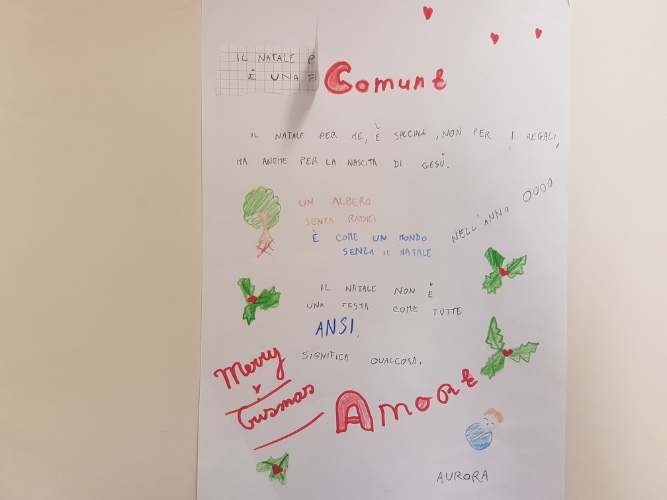 IL NATALE P
È UNA F
Comune
IL NATALE PER ME, È SPECIALE, NON PER I REGALI,
MA ANCHE PER LA NASCITA DI GESÙ.
NELL'ANNO 0000
UN ALBERO
SENZA RADICI
È COME UN MONDO
SENZA IL NATALE
IL NATALE NON È
UNA FESTA COME TUTTE
ANSI.
SIGNIFICA QUALCOSA.
Merry
Crismas
AmoRe
AURORA